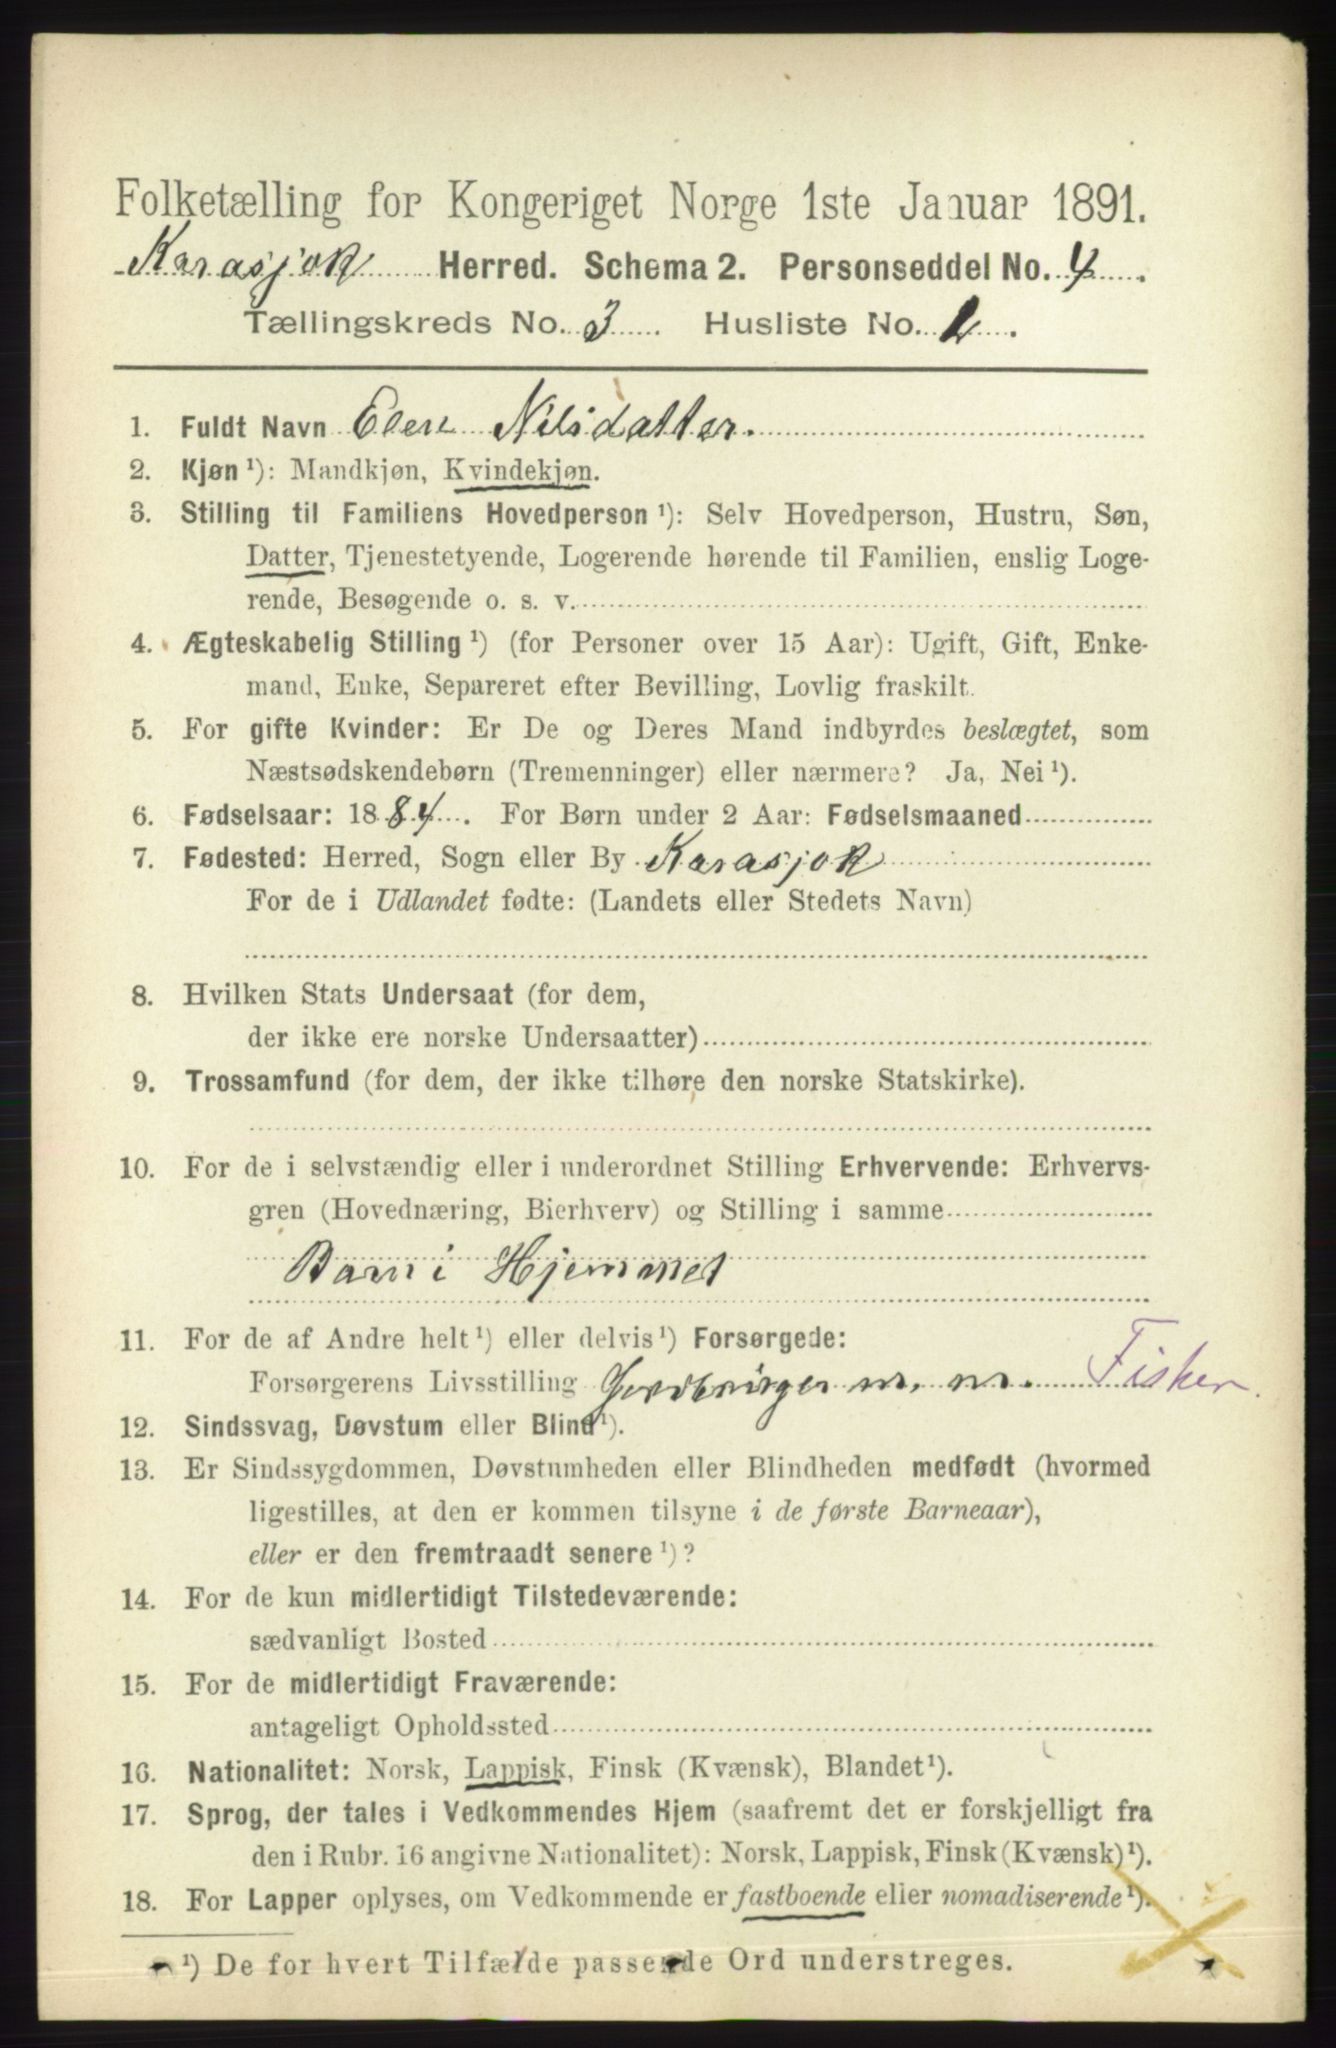 Folketælling for Kongeriget Norge 1ste Januar 1891.
Karasjok Herred. Schema 2. Personseddel No. 4.
Tællingskreds No. 3. Husliste No. 1.
1. Fuldt Navn Elen Nilsdatter.
2. Kjøn ¹): Mandkjøn, Kvindekjøn.
3. Stilling til Familiens Hovedperson ¹): Selv Hovedperson, Hustru, Søn,
Datter, Tjenestetyende, Logerende hørende til Familien, enslig Loge-
rende, Besøgende o. s. v.
4. Ægteskabelig Stilling ¹) (for Personer over 15 Aar): Ugift, Gift, Enke-
mand, Enke, Separeret efter Bevilling, Lovlig fraskilt.
5. For gifte Kvinder: Er De og Deres Mand indbyrdes beslægtet, som
Næstsødskendebørn (Tremenninger) eller nærmere? Ja, Nei ¹).
6. Fødselsaar: 1884. For Børn under 2 Aar: Fødselsmaaned
7. Fødested: Herred, Sogn eller By Karasjok
For de i Udlandet fødte: (Landets eller Stedets Navn)
8. Hvilken Stats Undersaat (for dem,
der ikke ere norske Undersaatter)
9. Trossamfund (for dem, der ikke tilhøre den norske Statskirke).
10. For de i selvstændig eller i underordnet Stilling Erhvervende: Erhvervs-
gren (Hovednæring, Bierhverv) og Stilling i samme
Barn i Hjemmet
11. For de af Andre helt ¹) eller delvis ¹) Forsørgede:
Forsørgerens Livsstilling m. m. Fisker.
12. Sindssvag, Døvstum eller Blind ¹).
13. Er Sindssygdommen, Døvstumheden eller Blindheden medfødt (hvormed
ligestilles, at den er kommen tilsyne i de første Barneaar),
eller er den fremtraadt senere ¹)?
14. For de kun midlertidigt Tilstedeværende:
sædvanligt Bosted
15. For de midlertidigt Fraværende:
antageligt Opholdssted
16. Nationalitet: Norsk, Lappisk, Finsk (Kvænsk), Blandet ¹).
17. Sprog, der tales i Vedkommendes Hjem (saafremt det er forskjelligt fra
den i Rubr. 16 angivne Nationalitet): Norsk, Lappisk, Finsk (Kvænsk) ¹).
18. For Lapper oplyses, om Vedkommende er fastboende eller nomadiserende ¹).
¹) De for hvert Tilfælde passende Ord understreges.